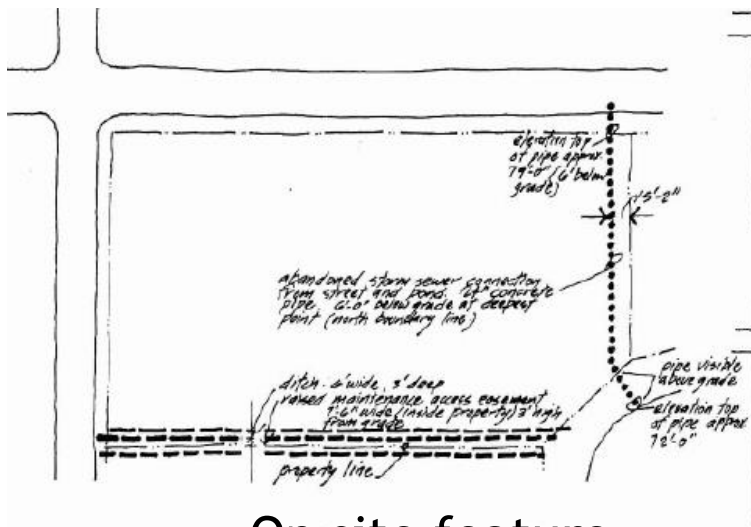 elevation top
of pipe approx.
79'-0" (6' below
grade)
15'-2"
abandoned storm sewer connection
from street and pond. concrete
pipe. 6'-0" below grade at deepest
point (north boundary line)
pipe visible
above grade
ditch - 6' wide, 3' deep
raised maintenance access easement
7'-6" wide (inside property) 3' high
from grade
elevation top
of pipe approx
72'-0"
property line
On-site feature